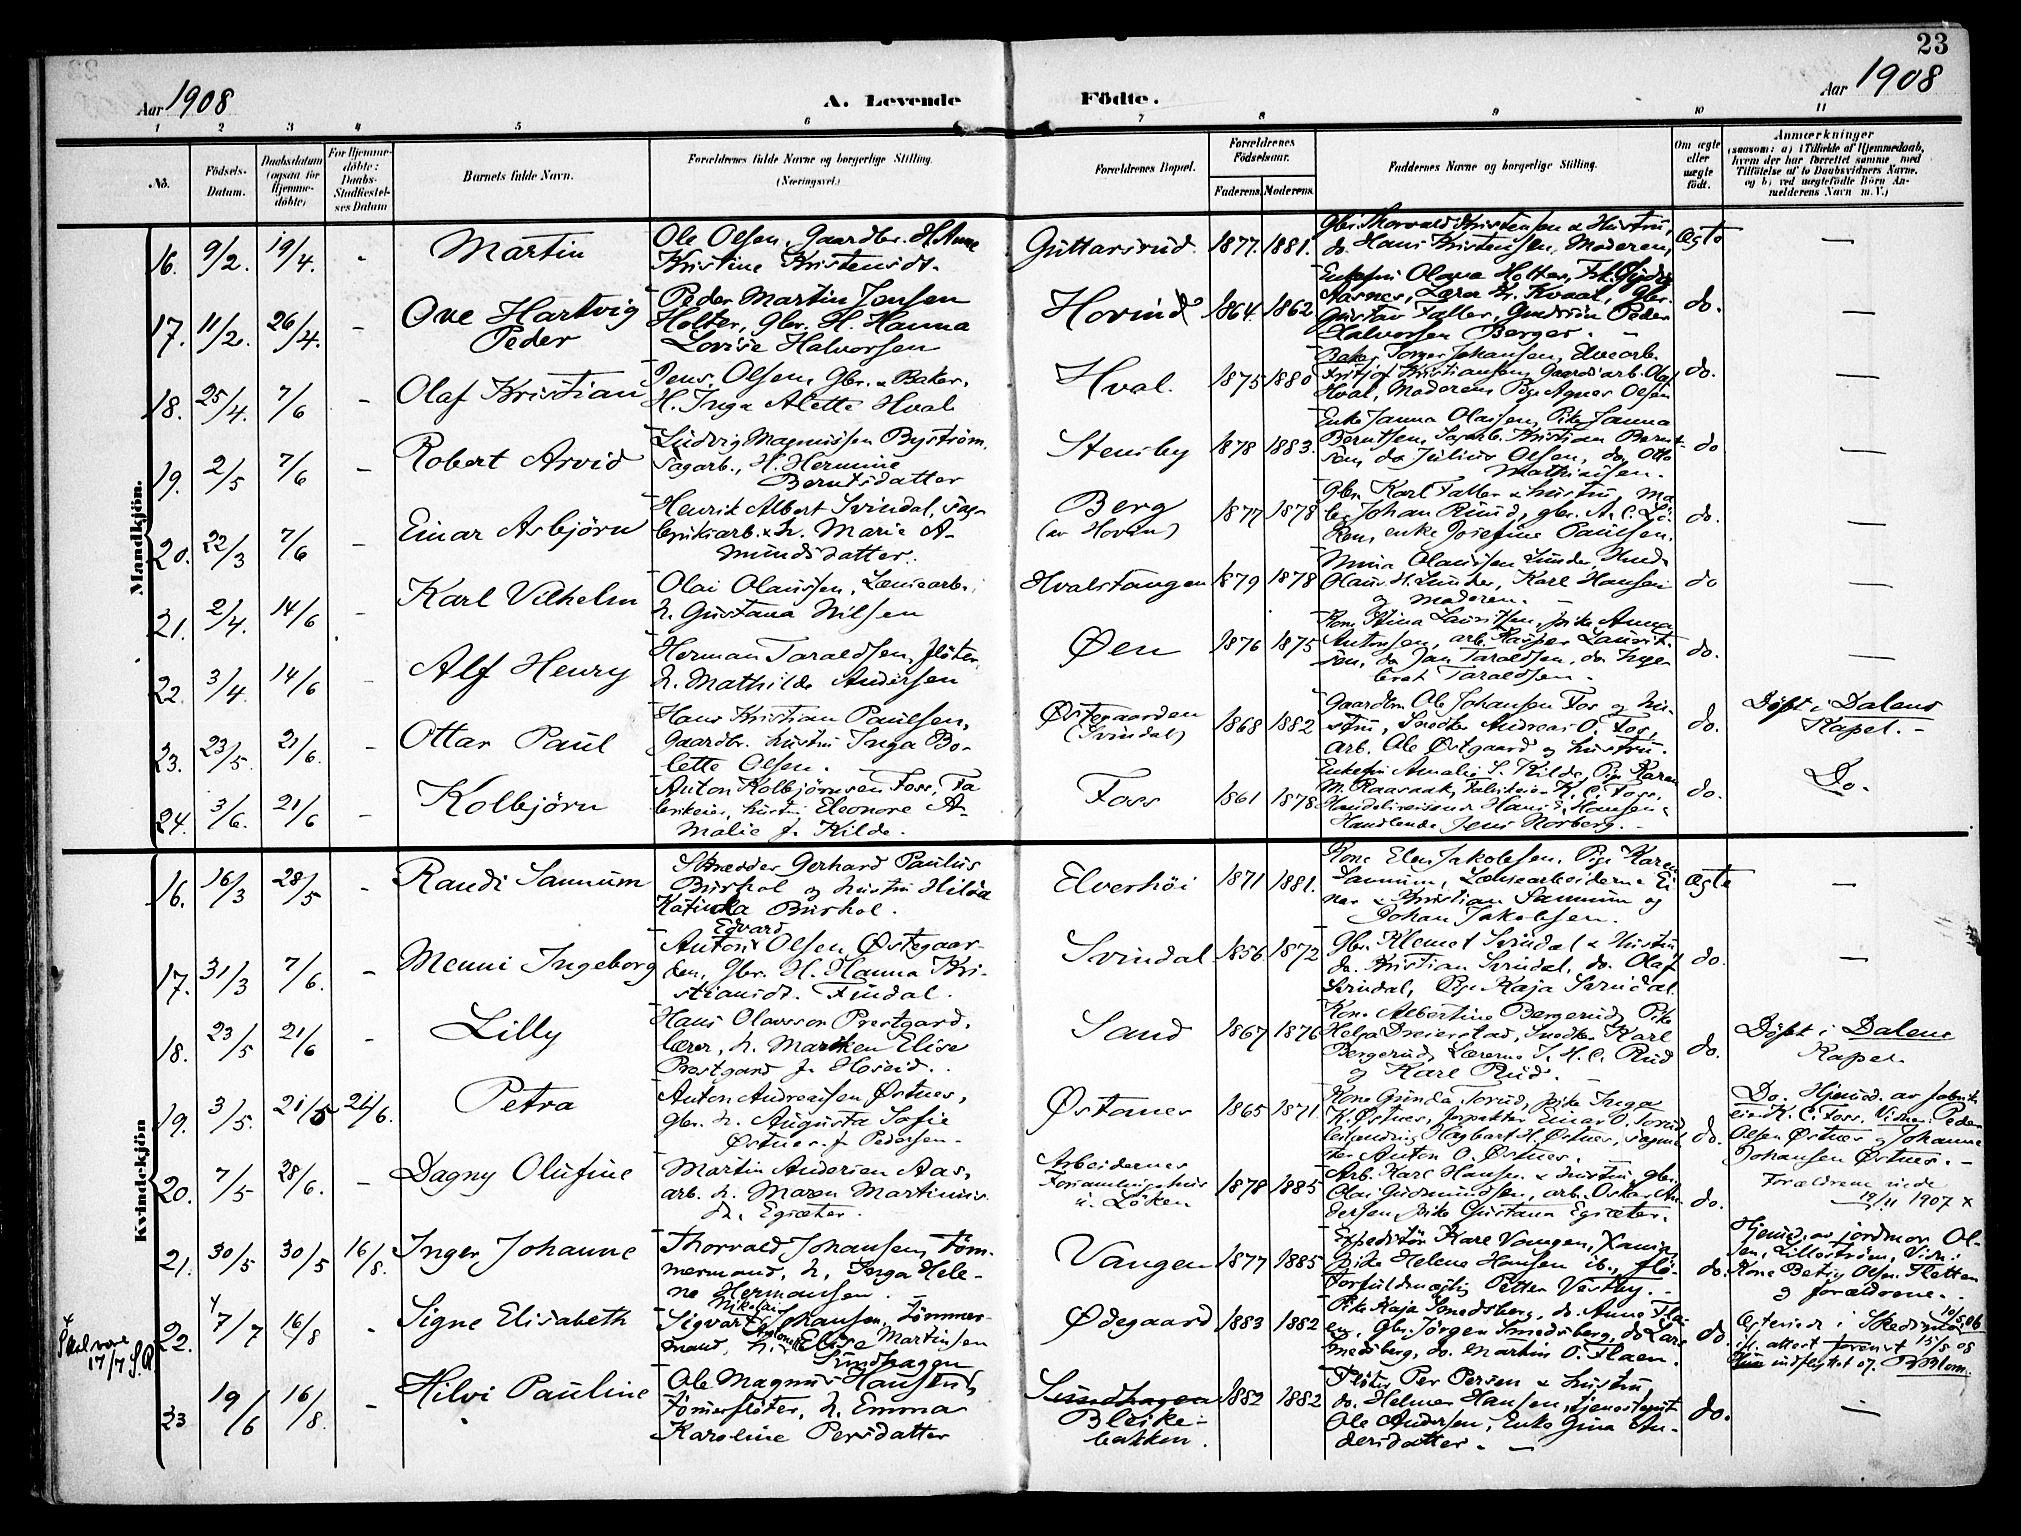 23
Aar 1908
A. Levende Födte.
Aar 1908
1 2 3 4 5 6 7 8 9 10 11
No.
Födsels-Datum.
Daabsdatum (ogsaa for Hjemme-döbte)
For Hjemme-döbte: Daabs-Stadfæstelses Datum
Barnets fulde Navn.
Forældrenes fulde Navne og borgerlige Stilling. (Næringsvei.)
Forældrenes Bopæl.
Forældrenes Födselsaar.
Faderens. Moderens.
Faddernes Navne og borgerlige Stilling.
Om ægte eller uægte födt.
Anmærkninger
(saasom: a) i Tilfælde af Hjemmedaab, hvem der har forrettet samme, med Tilföielse af to Daabsvidners Navne, og b) ved uægtefödte Börn Anmelderens Navn m. V.)
Mandkjön.
16. 9/2. 19/4. - Martin
Ole Olsen, Gaardbr. H. Anne
Kristine Kristensdt.
Guttarsrud 1877. 1881.
Gbr. Thorvald Kristensen & Hustru,
do. Hans Kristensen, Moderen,
Ægte —
17. 11/2. 26/4. - Ove Hartvig
Peder
Peder Martin Jensen
Holter, Gbr. H. Hanna
Lovise Halvorsen
Hovind 1864. 1862
Enkefru Olava Holter,
Aasnes, Lærer Kr. Kvaal, Gbr.
Gustav Faller, Gudrun Peder
Halvorsen Berger. —
do. —
18. 25/4. 7/6 - Olaf Kristian
Jens Olsen, Gbr. & Baker.
H. Inga Alette Hval
Hval. 1875 1880
Baker Torger Johansen, Elvearb.
Fritjof Kristiansen, Gaardsarb. Olaf
Hval, Moderen Pige Agnes Olsen
do. —
19. 2/5 7/6 - Robert Arvid
Ludvig Magnussen Byström,
Sagarb., H. Hermine
Berntsdatter
Stensby 1878 1883.
Enke Janna Olaisen, Pike Janna
Berntsen, Sagarb. Kristian Bernt-
sen, do Julius Olsen, do. Otto
Mathisen.
do —
20. 22/3 7/6 - Einar Asbjörn
Henrik Albert Svindal, Fabrikarb. & h. Marie A-
mundsdatter.
Berg
(av Hovin)
1877 1878
Gbr. Karl Faller & hustru, Ma-
ler Johan Ruud, gbr. A. C. Lö-
ken, enke Josefine Paulsen.
do. —
21. 2/4. 14/6 - Karl Vilhelm
Olai Olaussen, Lænsearb.
h. Gustava Nilsen
Hvalstangen 1879 1878
Mina Olaussen Lunder,
Olaus H. Lunder, Karl Hansen
og Moderen. —
do —
22. 3/4. 14/6 - Alf Henry
Herman Taraldsen, flöter
h. Mathilde Andersen
Øen 1876 1875
Kone Stina Lauritsen, pike Anna
Antonsen, arb. Kasper Laurit-
sen, do Jan Taraldsen, do Inge-
bret Taraldsen.
do. —
23. 23/5. 21/6. - Ottar Paul
Hans Kristian Paulsen,
Gaardbr. hustru Inga Bo-
lette Olsen.
Østegaarden
(Svindal)
1868 1882
Gaardbr. Ole Johansen Fos og hu-
stru, Snedker Andreas O. Fos,
arb. Ole Østgaard og hustru.
do. Døbt i Dalens
Kapel. —
24. 3/6. 21/6 - Kolbjörn
Anton Kolbjörnsen Foss, Fa-
brikeier, hustru Eleonore A-
malie f. Kilde.
Foss 1861 1878
Enkefru Amalie S. Kilde, Pige Karen
M. Raasaak, Fabrikeier K. C. Foss,
Handelsreisende Hans Hansen,
Handlende Jens Norberg. —
do. Do.
Kvindekjön
16. 16/3 28/5 - Randi Sannum
Skrædder Gerhard Paulus
Burhol og hustru Hilda
Katinka Burhol.
Elverhöi 1871 1881.
Kone Elen Jakobsen, Pige Karen
Sannum, Lænsearbeiderne Ei-
nar & Kristian Sannum og
Johan Jakobsen.
Ægte —
17. 31/3 7/6. - Menni Ingeborg
Edvard
Anton Olsen Østegaar-
den, Gbr. H. Hanna Kri-
stiansdt. Findal.
Svindal 1856 1872
Gbr. Klemet Svindal & Hustru
do. Kristian Svindal, do. Olaf
Svindal, Pige Kaja Svindal
do. —
18. 23/5 21/6 - Lilly
Hans Olavsson Prestgard,
lærer, h. Marken Elise
Prestgard f. Hoseid.
Sand 1867 1876
Kone Albertine Bergerud, Pike
Helga Dreierstad, Snedker Karl
Bergerud, Lærerne J. H. C. Rud
og Karl Rud. —
do. Døbt i Dalens
Kapel.
19. 3/5. 21/5 21/6. Petra
Anton Andreassen Østnes,
gbr. h. Augusta Sofie
Østnes f. Pedersen.
Østanes 1865 1871.
Kone Gunda Torud, pike Inga
K. Østnes, Inspektør Einar O. Torud
Hagbart H. Østnes,
Anton O. Østnes.
do. Do. Hjemd. av fabrik-
eier K. C. Foss. Vidner: Peder
Olsen Østnes og Johanne
Johansen Østnes. —
20. 7/5 28/6. - Dagny Olufine
Martin Andersen Aas,
arb. h. Maren Martinus-
dt. Egsæter.
Arbeidernes
Forsamlingshus
u. Löken
1878 1885
Arb. Karl Hansen & hustru, gbr.
Olai Gudmundsen, arb. Oskar An-
dersen, pike Gustava Egsæter.
do. Forældrene viede
19/11 1907 x
21. 30/5 30/5 16/8. Inger Johanne
Thorvald Johansen, töm-
mermand, h. Inga Hele-
ne Hermansen. —
Vangen 1877 1885
Expeditör Karl Vangen,
pike Helene Hansen ib.,
Forfuldmægtig Petter Vestby.
do. Hjemd. av jordmor Ol-
sen, Lilleström, Vidn:
Kone Betzy Olsen Fletten
& forældrene. —
x Skal være
17/7 S.R.
22. x 7/7 16/8 - Signe Elisabeth
Nikolai
Sigvart Johansen, Tömmer-
mand, h. Elise Martinsen
Sundhagen
Ødegaard 1883 1882
Pike Kaja Smedsberg, do. Anne Fla-
en, Gbr. Jörgen Smedsberg, do Lars
Smedsberg, do. Martin O. Flaen.
do. Ægteviede i Skedsmo 10/5 06
ifl. attest forevist 15/5 08
Blom.
23 19/6 16/8. - Hilvi Pauline
Ole Magnus Hansen,
Tömmerflöter, h. Emma
Karoline Persdatter
Sundhagen
Bleike-
bakken.
1882 1882
Flöter Per Persen & hustru,
do. Helmer Hansen, tjenestepike
Ole Andersen, Enke Gina An-
dersdatter. —
do. —